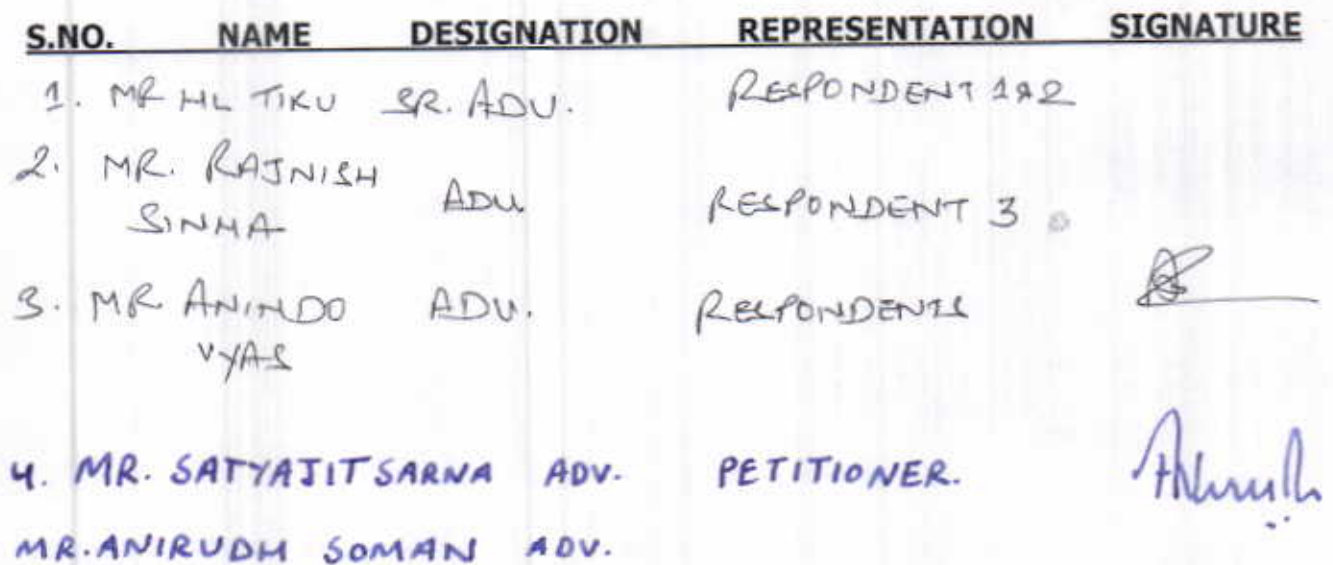 S.NO. NAME DESIGNATION REPRESENTATION SIGNATURE
1. MR HL TIKU SR. ADV. RESPONDENT 1&2
2. MR. RAJNISH
SINHA ADV. RESPONDENT 3
3. MR ANINDO ADV. RESPONDENTS
VYAS
4. MR. SATYAJIT SARNA ADV. PETITIONER.
MR. ANIRUDH SOMAN ADV.